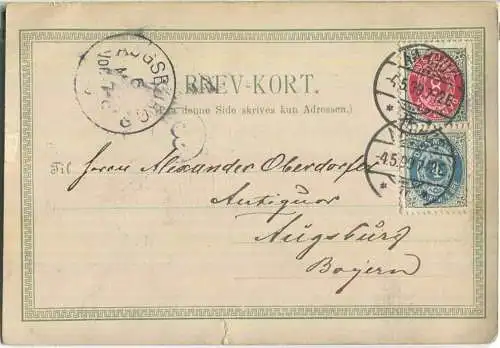 AUGSBURG
BREV-KORT.
(Paa denne Side skrives kun Adressen.)
Til Herrn Alexander Oberdorfer
Antiquar
Augsburg
Bayern